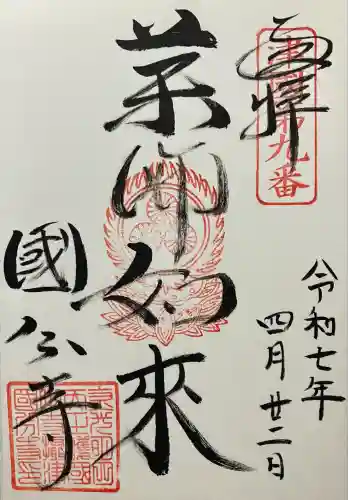 奉拝
第九番
薬師如來
國分寺
令和七年
四月廿二日